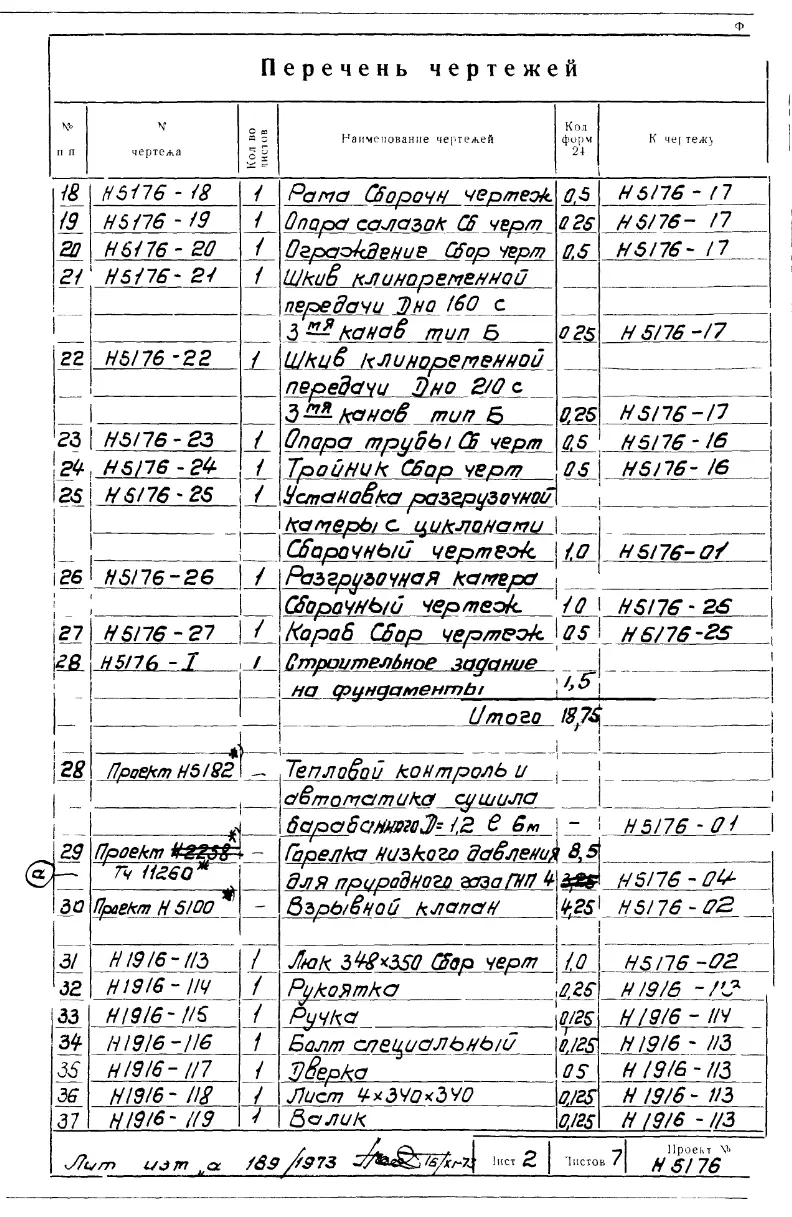 Ф
Перечень чертежей
№ п п | N чертежа | Кол во листов | Наименование чертежей | Кол форм 24 | К чертежу
18 | Н5176 - 18 | 1 | Рама Сборочн чертеж | 0,5 | Н5176 - 17
19 | Н5176 - 19 | 1 | Опора салазок Сб черт | 0 25 | Н5176 - 17
20 | Н6176 - 20 | 1 | Ограждение Сбор черт | 0,5 | Н5176 - 17
21 | Н5176 - 21 | 1 | Шкив клиноременной
передачи Dно 160 с
3 мя канав тип Б | 0 25 | Н 5176 - 17
22 | Н5176 - 22 | 1 | Шкив клиноременной
передачи Dно 210 с
3 мя канав тип Б | 0,25 | Н5176 - 17
23 | Н5176 - 23 | 1 | Опора трубы Сб черт | 0,5 | Н5176 - 16
24 | Н5176 - 24 | 1 | Тройник Сбор черт | 0 5 | Н5176 - 16
25 | Н5176 - 25 | 1 | Установка разгрузочной
камеры с циклонами
Сборочный чертеж | 1,0 | Н5176 - 01
26 | Н5176 - 26 | 1 | Разгрузочная камера
Сборочный чертеж | 1 0 | Н5176 - 26
27 | Н5176 - 27 | 1 | Короб Сбор чертеж | 0 5 | Н6176 - 25
28 | Н5176 - I | 1 | Строительное задание
на фундаменты | 1,5
Итого 18,75
28 | Проект Н5182 *) | - | Тепловой контроль и
автоматика сушила
барабанного D = 1,2 ℓ 6м | - | Н5176 - 01
29 | Проект Н2258 *) | - | Горелка низкого давления | 8,5
а | Тч 11260 * | для природного газа ГНП 4 | 3,25 | Н5176 - 04
30 | Проект Н 5100 *) | - | Взрывной клапан | 4,25 | Н5176 - 02
31 | Н 1916 - 113 | 1 | Люк 348×350 Сбор черт | 1,0 | Н5176 - 02
32 | Н1916 - 114 | 1 | Рукоятка | 0,25 | Н 1916 - 113
33 | Н1916 - 115 | 1 | Ручка | 0,125 | Н 1916 - 114
34 | Н1916 - 116 | 1 | Болт специальный | 0,125 | Н 1916 - 113
35 | Н1916 - 117 | 1 | Дверка | 0 5 | Н 1916 - 113
36 | Н1916 - 118 | 1 | Лист 4×340×340 | 0,125 | Н 1916 - 113
37 | Н1916 - 119 | 1 | Валик | 0,125 | Н 1916 - 113
Лит изм „а 189/1973 15/XI-73 | Лист 2 | Листов 7 | Проект № Н 5176